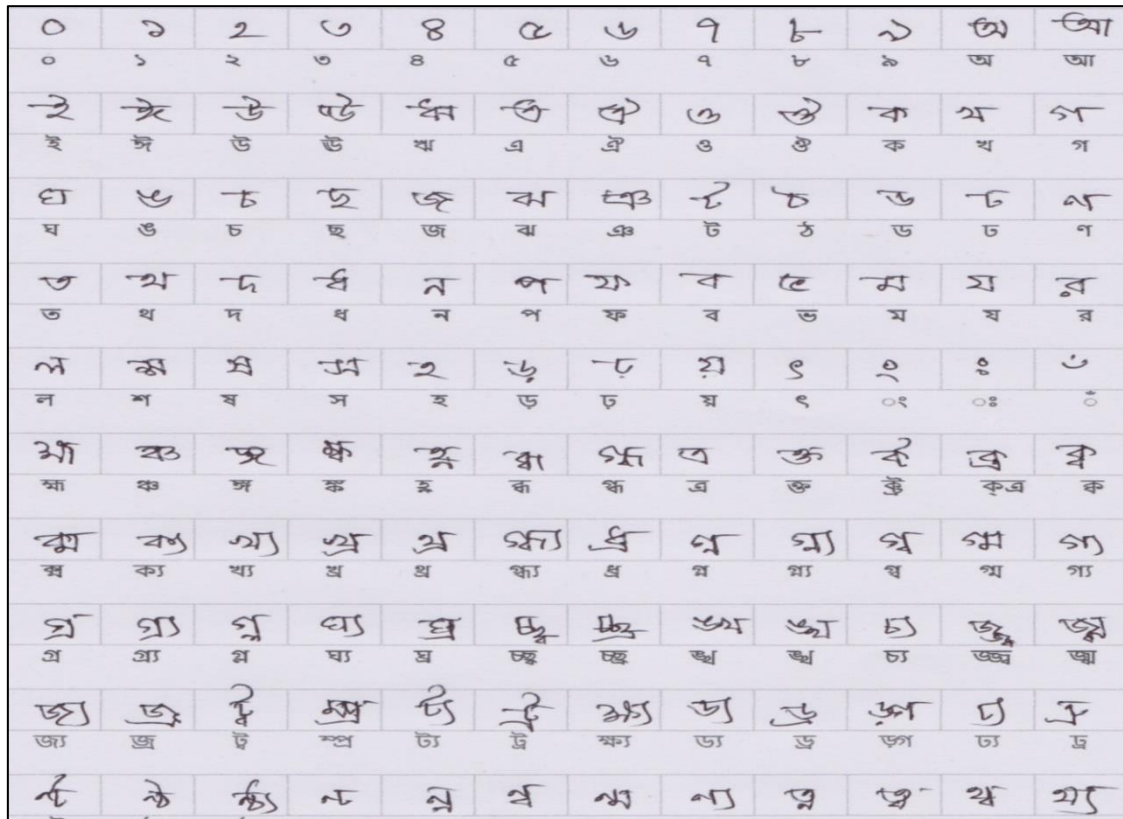 ০ ১ ২ ৩ ৪ ৫ ৬ ৭ ৮ ৯ অ আ
০ ১ ২ ৩ ৪ ৫ ৬ ৭ ৮ ৯ অ আ
ই ঈ উ ঊ ঋ এ ঐ ও ঔ ক খ গ
ই ঈ উ ঊ ঋ এ ঐ ও ঔ ক খ গ
ঘ ঙ চ ছ জ ঝ ঞ ট ঠ ড ঢ ণ
ঘ ঙ চ ছ জ ঝ ঞ ট ঠ ড ঢ ণ
ত থ দ ধ ন প ফ ব ভ ম য র
ত থ দ ধ ন প ফ ব ভ ম য র
ল শ ষ স হ ড় ঢ় য় ৎ ং ঃ ঁ
ল শ ষ স হ ড় ঢ় য় ৎ ং ঃ ঁ
ঞ্চ ঙ্গ ঙ্ক হ্ন ব্ধ গ্ধ ত্র ক্ত ক্র ক্ব
ঞ্চ ঙ্গ ঙ্ক হ্ন ব্ধ গ্ধ ত্র ক্ত ক্ট্র ক্ত্র ক্ব
ক্ম ক্য খ্য খ্র থ্র গ্ধ্য ধ্র গ্ন গ্ন্য গ্ব গ্ম গ্য
ক্স ক্য খ্য খ্র থ্র গ্ধ্য ধ্র গ্ন গ্ন্য গ্ব গ্ম গ্য
গ্র গ্র্য গ্ল ঘ্য ঘ্র চ্ছ্ব চ্ছ্র ঙ্খ ঙ্খ চ্য জ্জ্ব জ্ঝ
গ্র গ্র্য গ্ল ঘ্য ঘ্র চ্ছ্ব চ্ছ্র ঙ্খ ঙ্খ চ্য জ্জ্ব জ্ঝ
জ্য জ্র ট্ব ম্প্র ট্য ট্র ক্ষ্য ড্য ড্র ড়্গ ঢ্য ঢ্র
জ্য জ্র ট্ব ম্প্র ট্য ট্র ক্ষ্য ড্য ড্র ড়্গ ঢ্য ঢ্র
ণ্ট ণ্ঠ ণ্ঠ্য ণ্ঢ ণ্ন ণ্ব ণ্ম ণ্য ত্ন ত্ব থ্ব থ্য